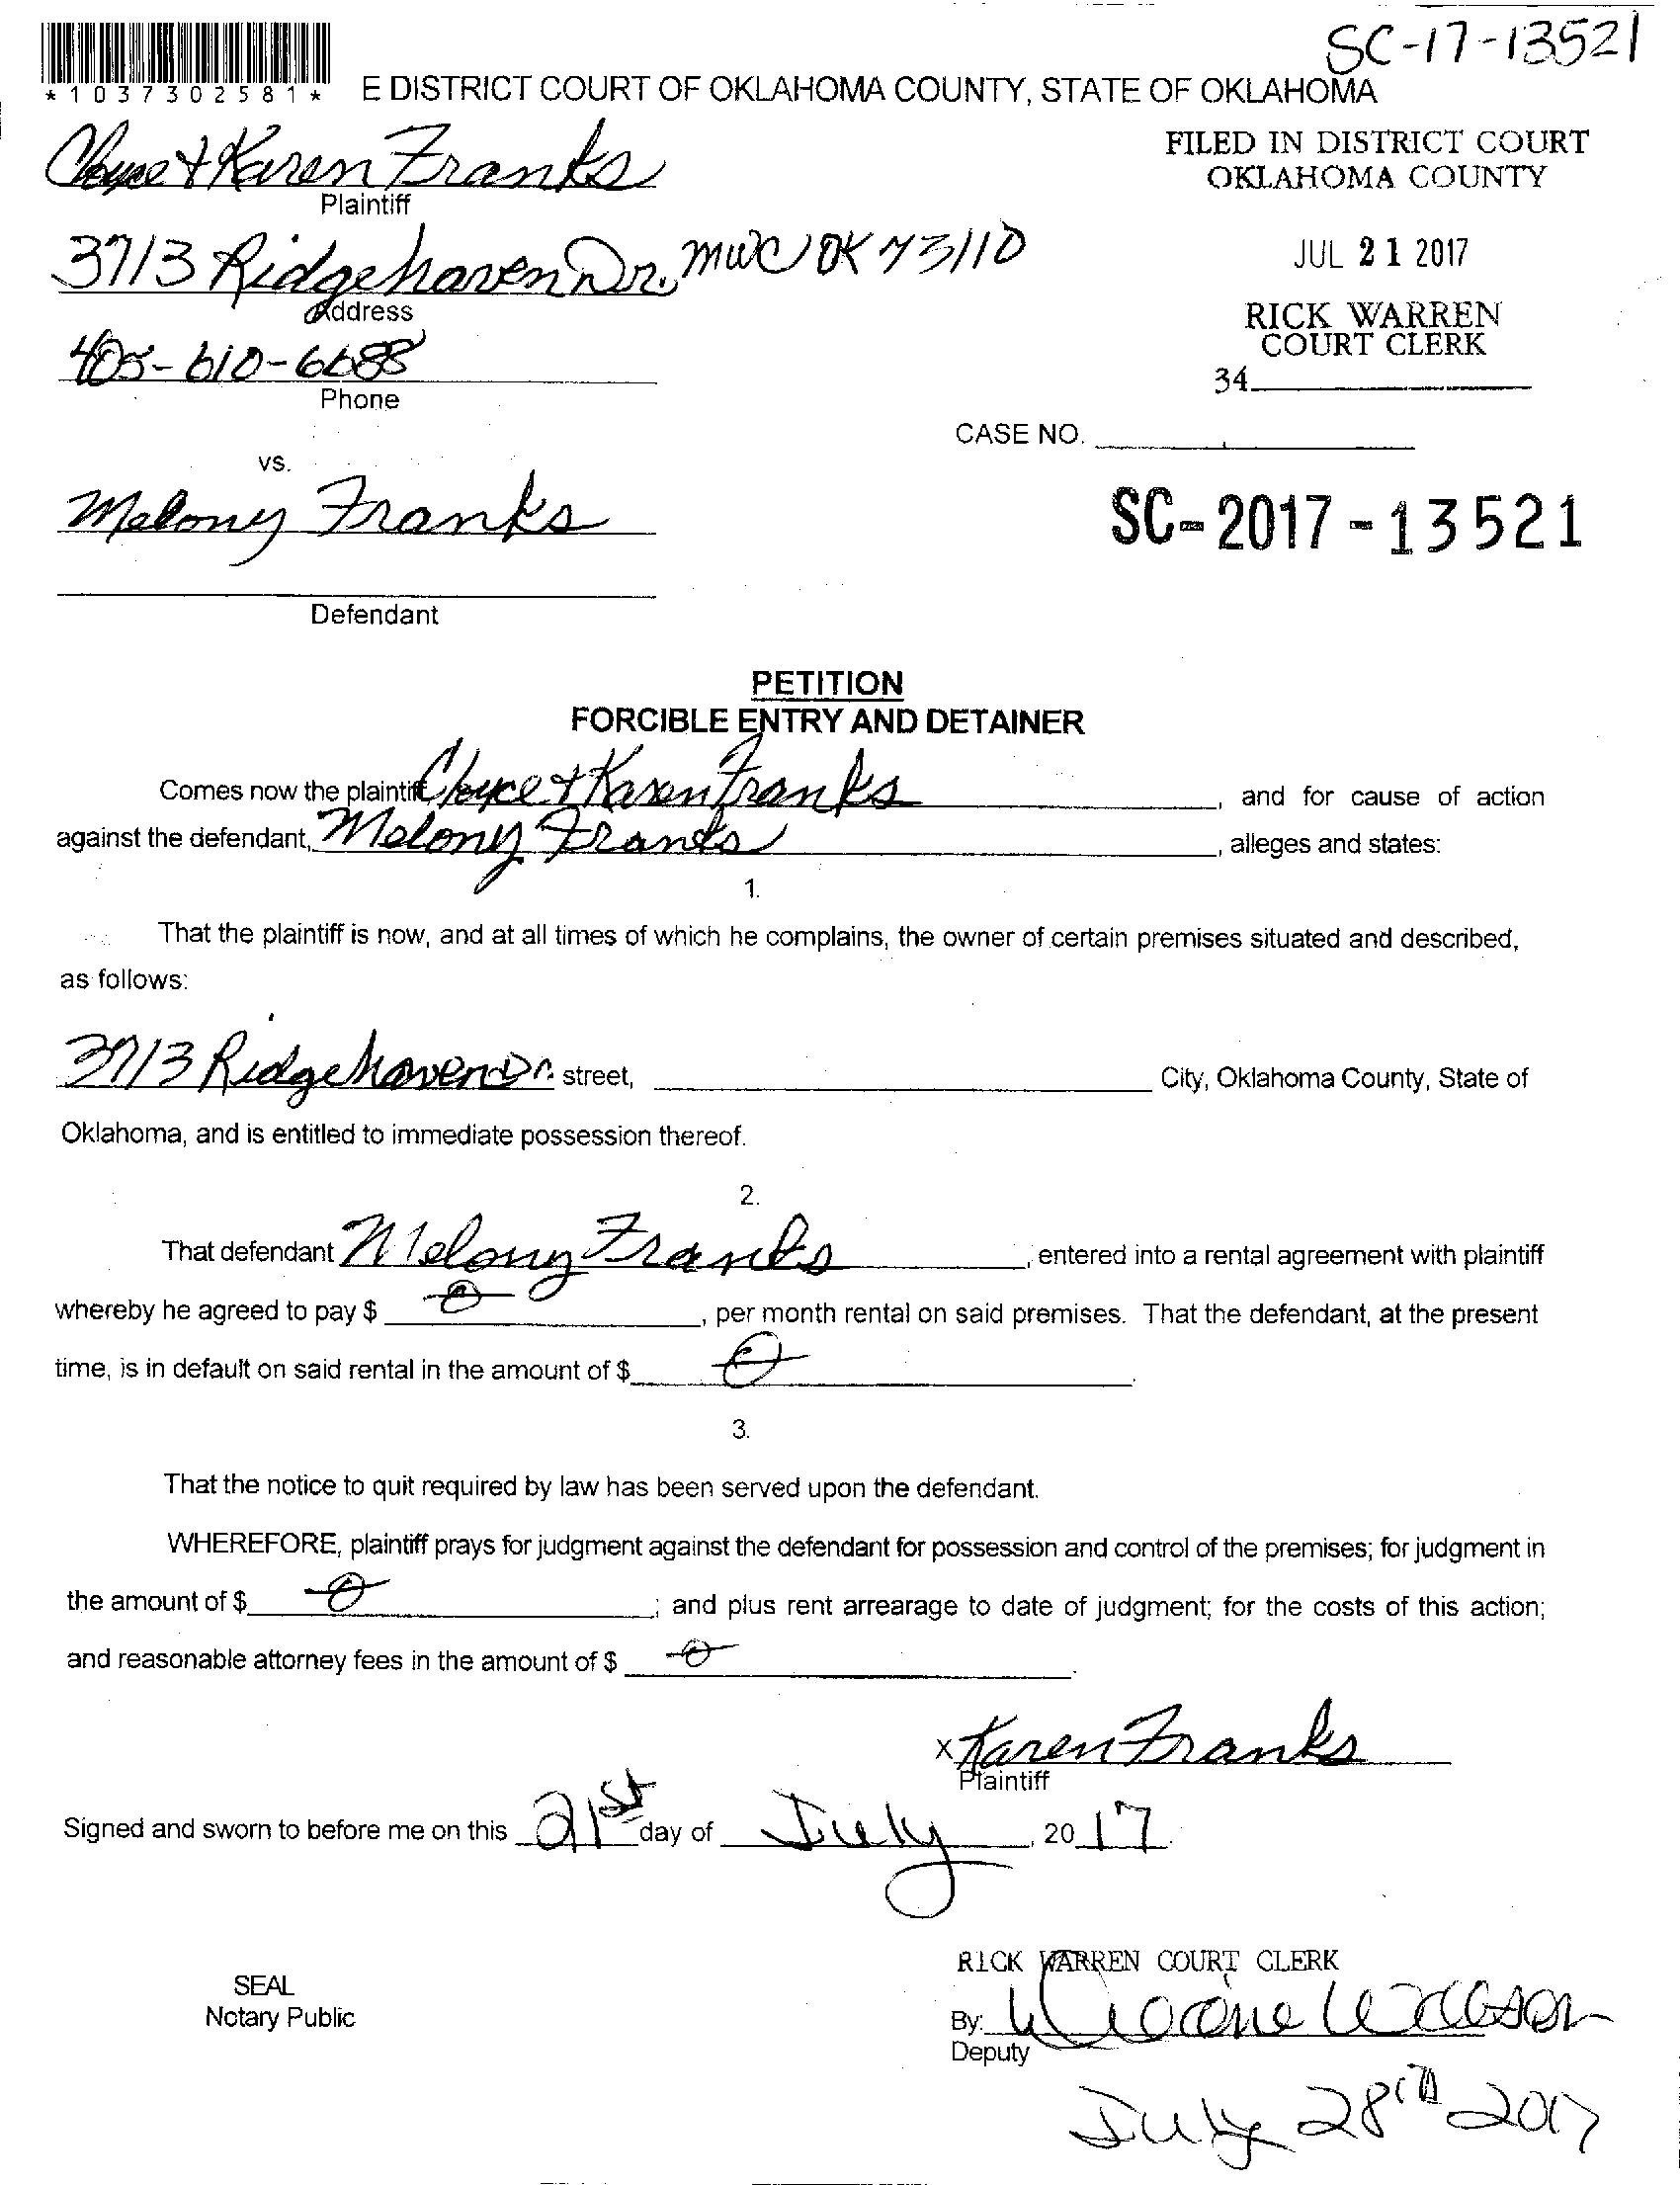 SC-17-13521
*1037302581*
E DISTRICT COURT OF OKLAHOMA COUNTY, STATE OF OKLAHOMA
Cloyce & Karen Franks
Plaintiff
FILED IN DISTRICT COURT
OKLAHOMA COUNTY
3713 Ridgehaven Dr. MWC OK 73110
Address
JUL 21 2017
405-610-6688
Phone
RICK WARREN
COURT CLERK
34
CASE NO.
vs.
Melony Franks
SC-2017-13521
Defendant
PETITION
FORCIBLE ENTRY AND DETAINER
Comes now the plaintiff Cloyce & Karen Franks, and for cause of action
against the defendant, Melony Franks, alleges and states:
1.
That the plaintiff is now, and at all times of which he complains, the owner of certain premises situated and described,
as follows:
3713 Ridgehaven Dr. street, City, Oklahoma County, State of
Oklahoma, and is entitled to immediate possession thereof.
2.
That defendant Melony Franks, entered into a rental agreement with plaintiff
whereby he agreed to pay $ 0, per month rental on said premises. That the defendant, at the present
time, is in default on said rental in the amount of $ 0.
3.
That the notice to quit required by law has been served upon the defendant.
WHEREFORE, plaintiff prays for judgment against the defendant for possession and control of the premises; for judgment in
the amount of $ 0; and plus rent arrearage to date of judgment; for the costs of this action;
and reasonable attorney fees in the amount of $ 0.
X Karen Franks
Plaintiff
Signed and sworn to before me on this 21st day of July, 2017.
SEAL
Notary Public
RICK WARREN COURT CLERK
By:
Deputy
July 28th 2017